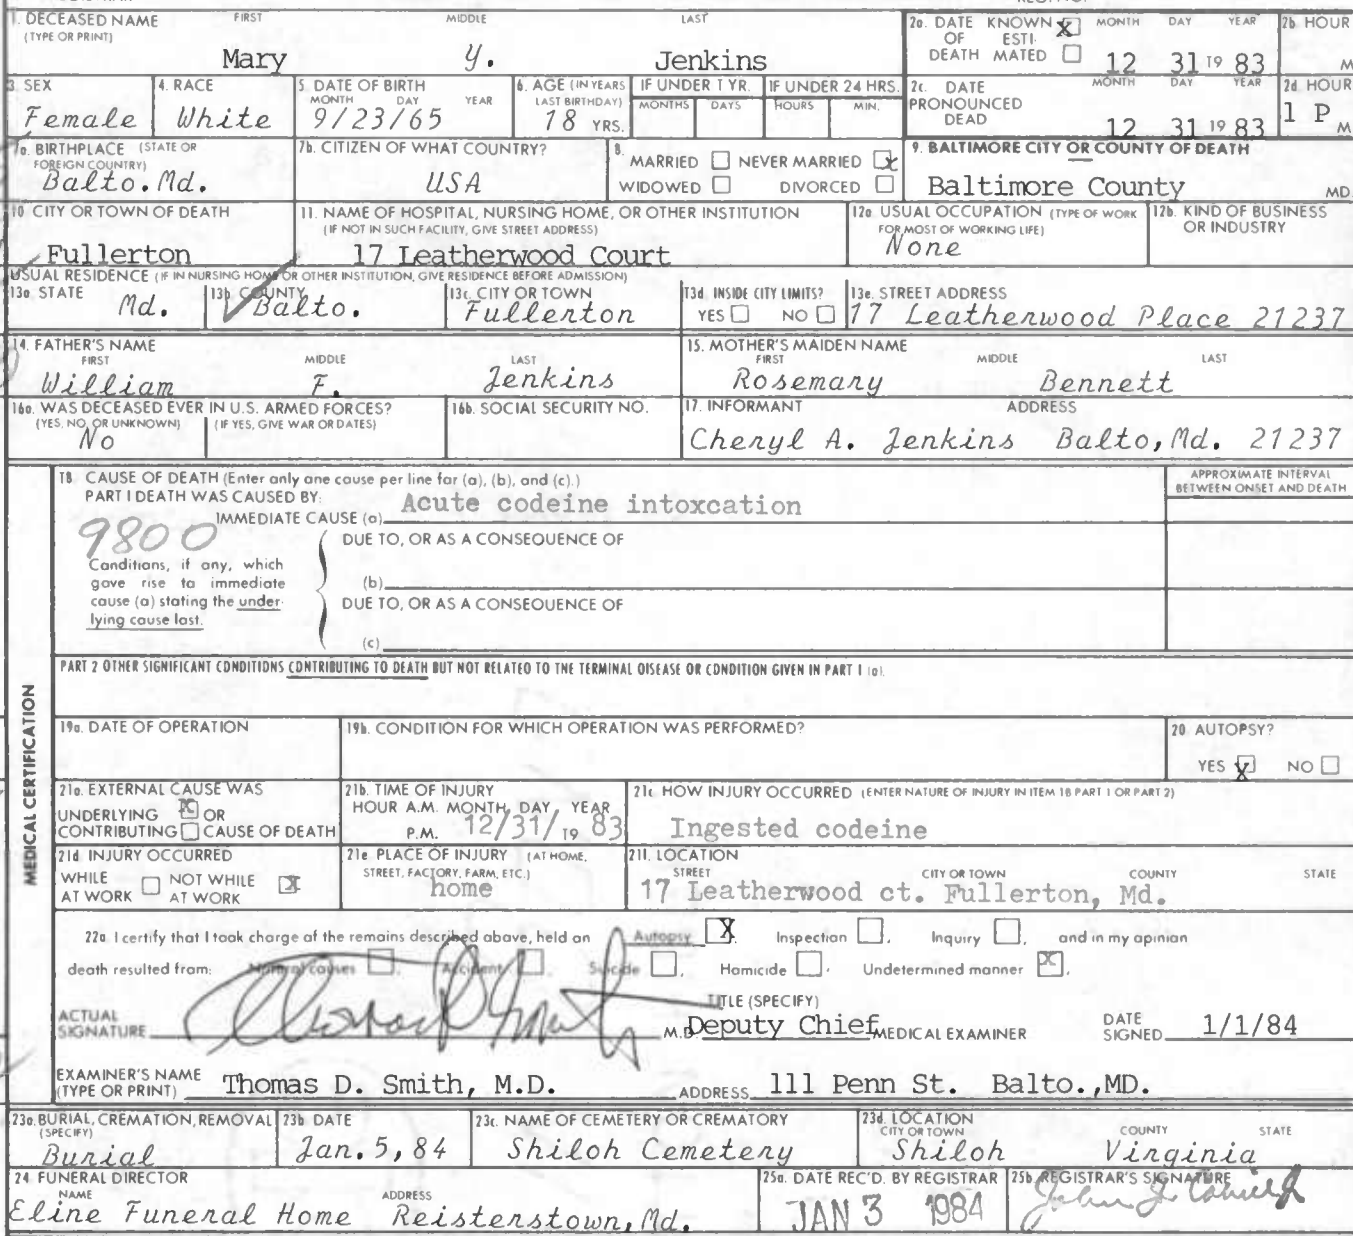 1. DECEASED NAME FIRST MIDDLE LAST
(TYPE OR PRINT)
Mary y. Jenkins
2a. DATE KNOWN X MONTH DAY YEAR
OF ESTI-
DEATH MATED 12 31 19 83
2b HOUR
M
3. SEX
Female
4. RACE
White
5. DATE OF BIRTH
MONTH DAY YEAR
9/23/65
6. AGE (IN YEARS
LAST BIRTHDAY)
18 YRS.
IF UNDER 1 YR.
MONTHS DAYS
IF UNDER 24 HRS.
HOURS MIN.
2c. DATE MONTH DAY YEAR
PRONOUNCED
DEAD 12 31 19 83
2d HOUR
1 P M
7a. BIRTHPLACE (STATE OR
FOREIGN COUNTRY)
Balto. Md.
7b. CITIZEN OF WHAT COUNTRY?
USA
8.
MARRIED NEVER MARRIED X
WIDOWED DIVORCED
9. BALTIMORE CITY OR COUNTY OF DEATH
Baltimore County MD.
10 CITY OR TOWN OF DEATH
Fullerton
11. NAME OF HOSPITAL, NURSING HOME, OR OTHER INSTITUTION
(IF NOT IN SUCH FACILITY, GIVE STREET ADDRESS)
17 Leatherwood Court
12a USUAL OCCUPATION (TYPE OF WORK
FOR MOST OF WORKING LIFE)
None
12b. KIND OF BUSINESS
OR INDUSTRY
USUAL RESIDENCE (IF IN NURSING HOME OR OTHER INSTITUTION, GIVE RESIDENCE BEFORE ADMISSION)
13a STATE
Md.
13b COUNTY
Balto.
13c. CITY OR TOWN
Fullerton
13d. INSIDE CITY LIMITS?
YES NO
13e. STREET ADDRESS
17 Leatherwood Place 21237
14. FATHER'S NAME
FIRST MIDDLE LAST
William F. Jenkins
15. MOTHER'S MAIDEN NAME
FIRST MIDDLE LAST
Rosemary Bennett
16a. WAS DECEASED EVER IN U.S. ARMED FORCES?
(YES, NO, OR UNKNOWN) (IF YES, GIVE WAR OR DATES)
No
16b. SOCIAL SECURITY NO.
17. INFORMANT ADDRESS
Cheryl A. Jenkins Balto, Md. 21237
MEDICAL CERTIFICATION
18 CAUSE OF DEATH (Enter only one cause per line for (a), (b), and (c).)
PART I DEATH WAS CAUSED BY:
IMMEDIATE CAUSE (a) Acute codeine intoxcation
APPROXIMATE INTERVAL
BETWEEN ONSET AND DEATH
9800
DUE TO, OR AS A CONSEQUENCE OF
Conditions, if any, which
gave rise to immediate
cause (a) stating the under-
lying cause last.
(b)
DUE TO, OR AS A CONSEQUENCE OF
(c)
PART 2 OTHER SIGNIFICANT CONDITIONS CONTRIBUTING TO DEATH BUT NOT RELATED TO THE TERMINAL DISEASE OR CONDITION GIVEN IN PART I (a).
19a. DATE OF OPERATION
19b. CONDITION FOR WHICH OPERATION WAS PERFORMED?
20 AUTOPSY?
YES X NO
21a. EXTERNAL CAUSE WAS
UNDERLYING X OR
CONTRIBUTING CAUSE OF DEATH
21b. TIME OF INJURY
HOUR A.M. MONTH, DAY, YEAR
P.M. 12/31/ 19 83
21c HOW INJURY OCCURRED (ENTER NATURE OF INJURY IN ITEM 18 PART 1 OR PART 2)
Ingested codeine
21d INJURY OCCURRED
WHILE NOT WHILE X
AT WORK AT WORK
21e PLACE OF INJURY (AT HOME,
STREET, FACTORY, FARM, ETC.)
home
21f. LOCATION
STREET CITY OR TOWN COUNTY STATE
17 Leatherwood ct. Fullerton, Md.
22a I certify that I took charge of the remains described above, held an Autopsy X. Inspection, Inquiry, and in my opinion
death resulted from: Natural causes, Accident, Suicide, Homicide, Undetermined manner X.
ACTUAL
SIGNATURE M.D.
TITLE (SPECIFY)
Deputy Chief MEDICAL EXAMINER
DATE
SIGNED 1/1/84
EXAMINER'S NAME
(TYPE OR PRINT) Thomas D. Smith, M.D. ADDRESS 111 Penn St. Balto.,MD.
23a. BURIAL, CREMATION, REMOVAL
(SPECIFY)
Burial
23b DATE
Jan. 5, 84
23c. NAME OF CEMETERY OR CREMATORY
Shiloh Cemetery
23d. LOCATION
CITY OR TOWN COUNTY STATE
Shiloh Virginia
24 FUNERAL DIRECTOR
NAME ADDRESS
Eline Funeral Home Reisterstown, Md.
25a. DATE REC'D. BY REGISTRAR
JAN 3 1984
25b REGISTRAR'S SIGNATURE